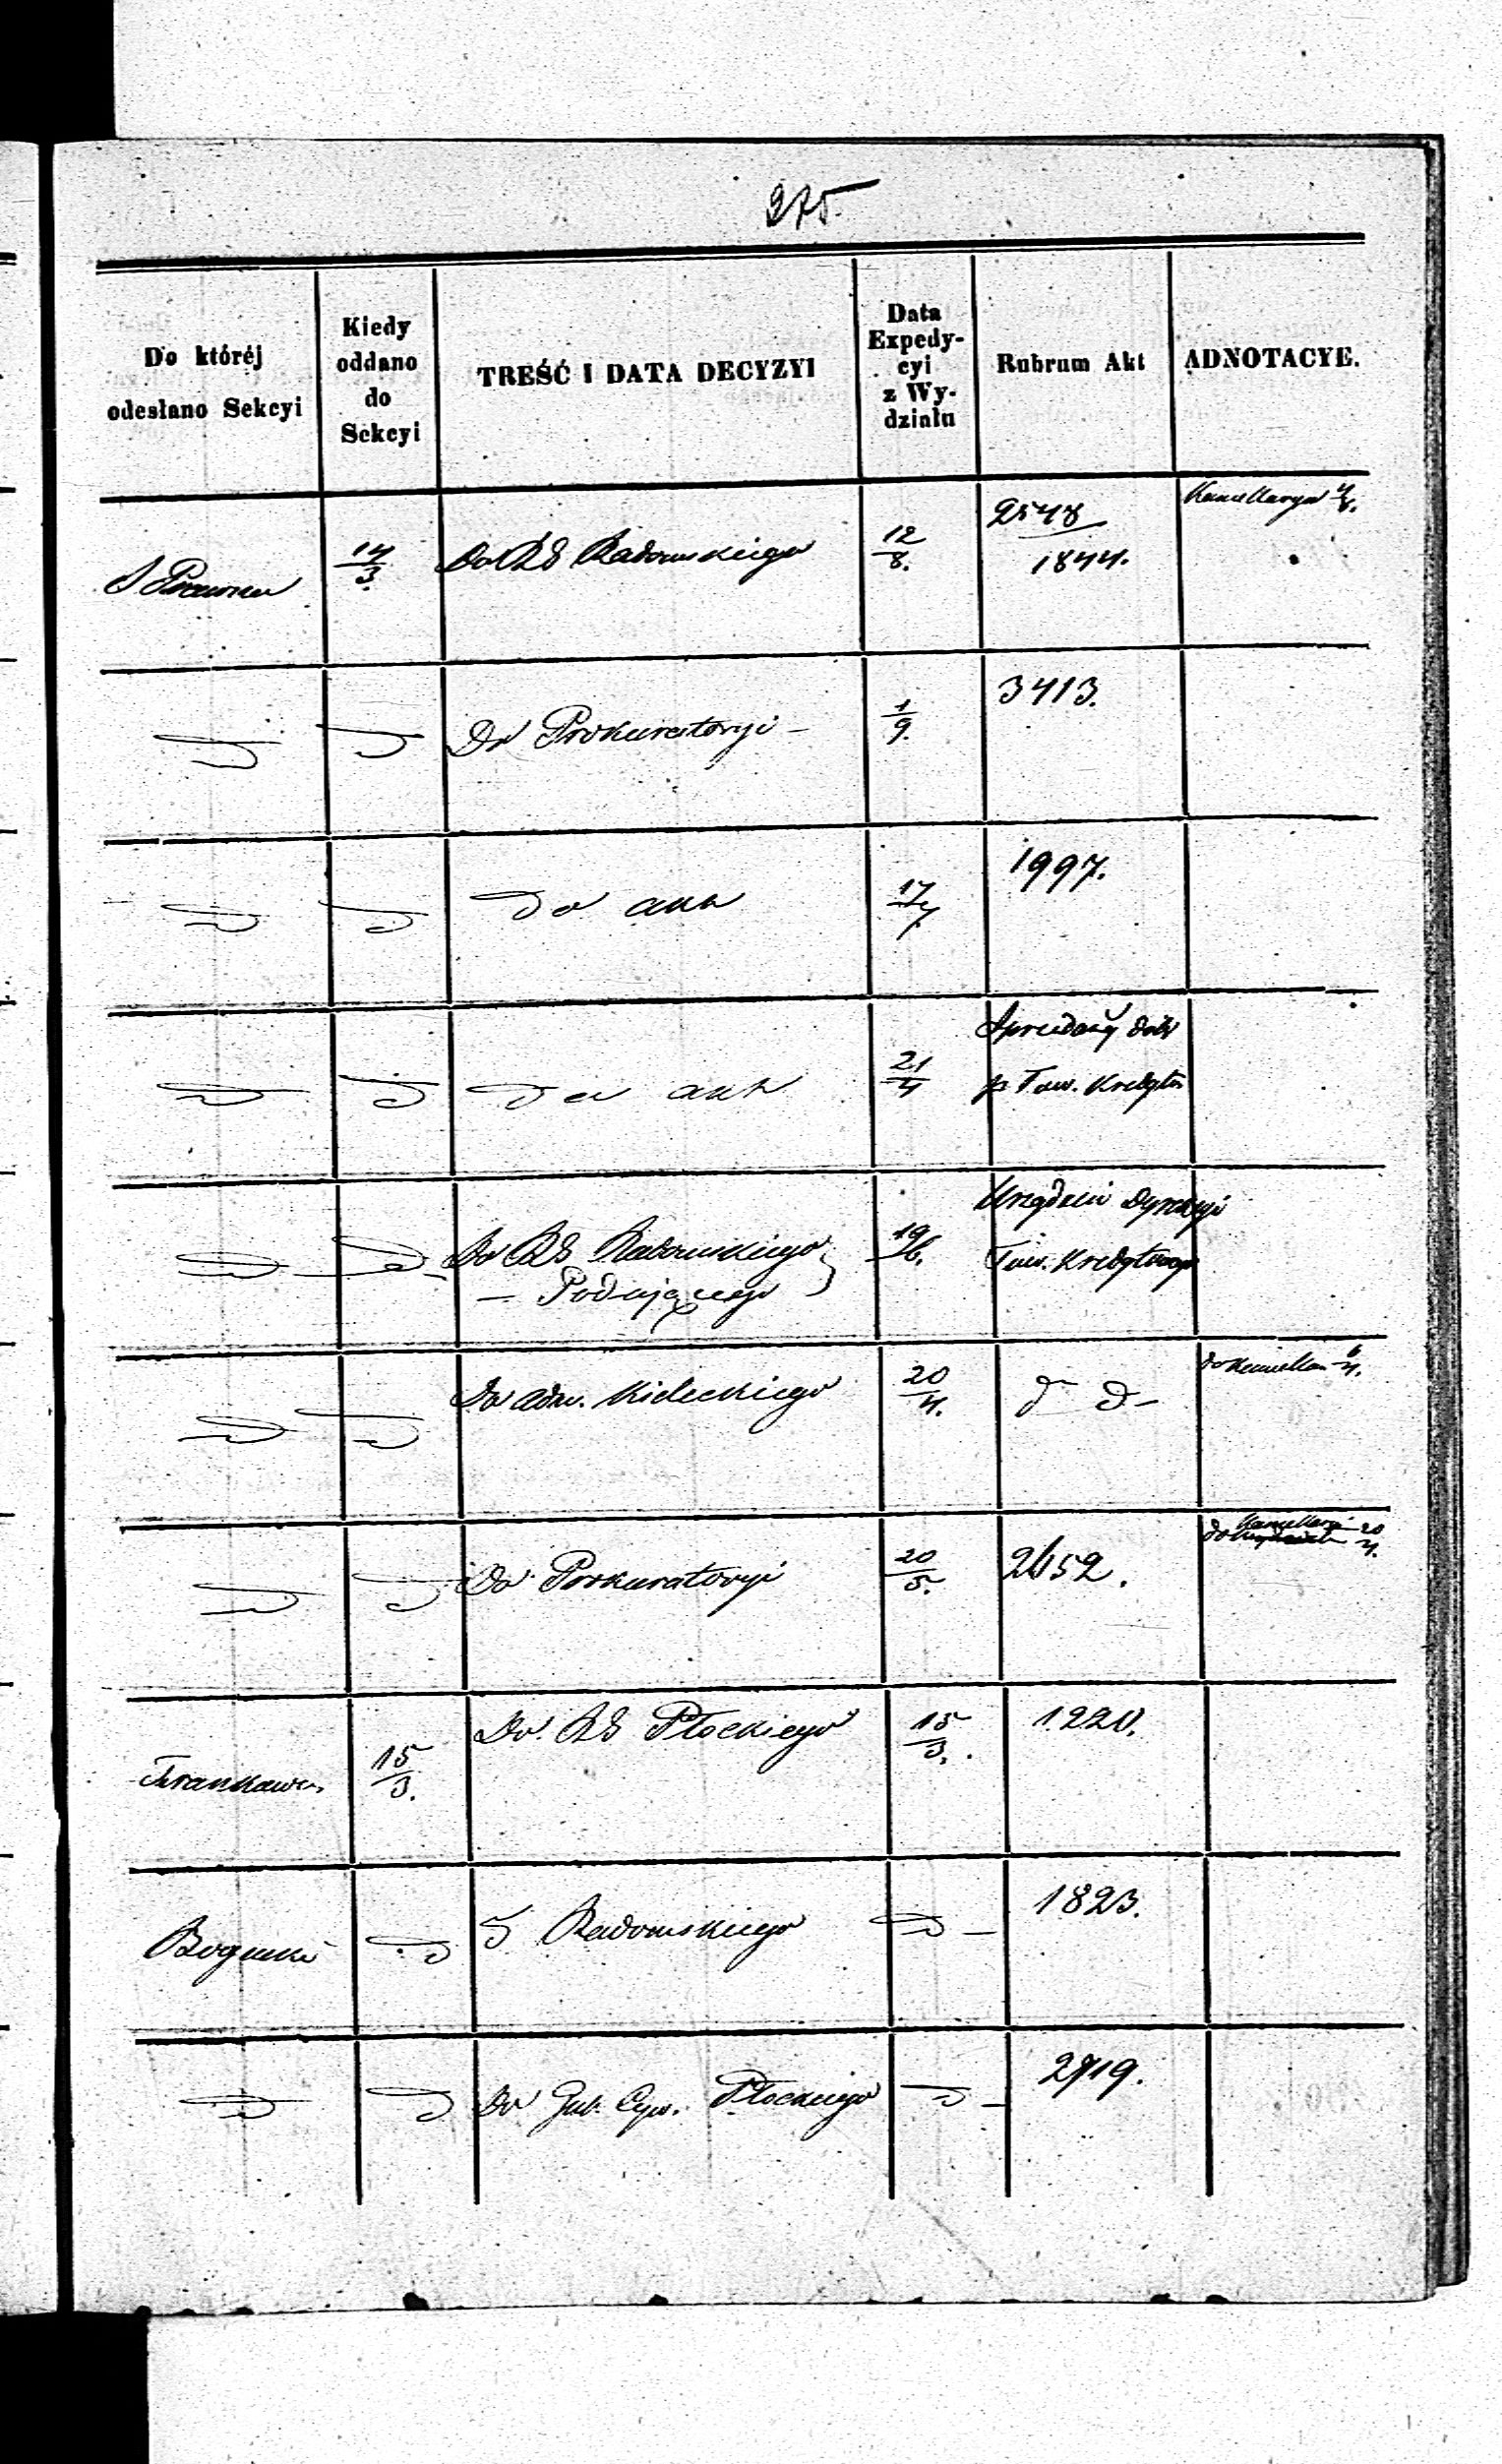 275.
Do któréj
odesłano Sekcyi
Kiedy
oddano
do
Sekcyi
TREŚĆ I DATA DECYZYI
Data
Expedy-
cyi
z Wy-
działu
Rubrum Akt
ADNOTACYE.
S Prawna
14/3.
Do RG Radomskiego
12/8.
2548
1844.
Kancellarya
Do Prokuratoryi –
1/9.
3413.
do akt
17/7.
1997.
do akt
21/4
Sprzedaży dóbr
p Tow. Kredyto
Do RG Radomskiego
– Podającego
19/6.
Urządzeń Dyrekcyi
Tow. Kredytowego
Do adw. Kieleckiego
20/4.
d d –
do Kancellar
Do Prokuratoryi
20/5.
2652.
Kancellaryi
do
20/4.
15/3.
Do RG Płockiego
15/3.
1220.
Bogucki
d
" Radomskiego
d –
1823.
d
d
Do Gub. Cyw. Płockiego
d –
2919.